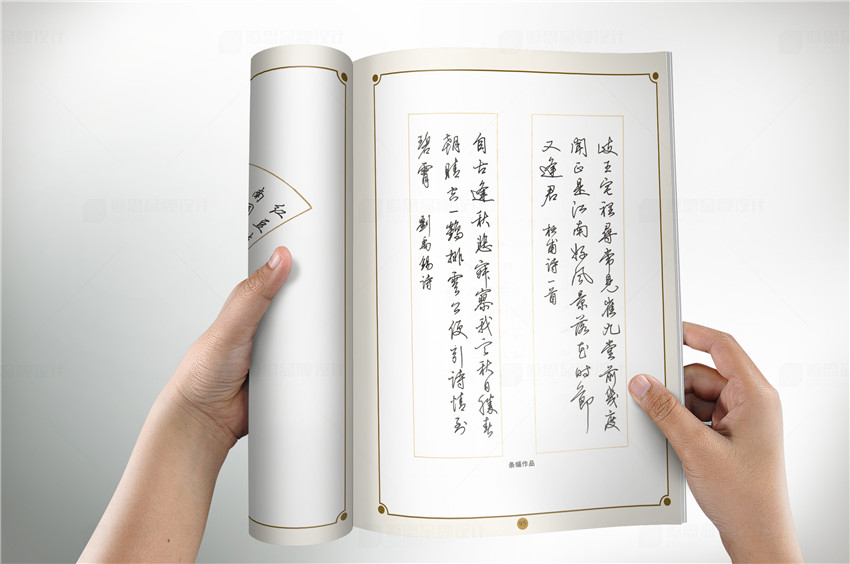 红豆
南国
岐王宅裡尋常見崔九堂前幾度
聞正是江南好风景落花时節
又逢君 杜甫诗一首
自古逢秋悲寂寥我言秋日勝春
朝晴空一鹤排雲上便引诗情到
碧霄 劉禹錫诗
条幅作品